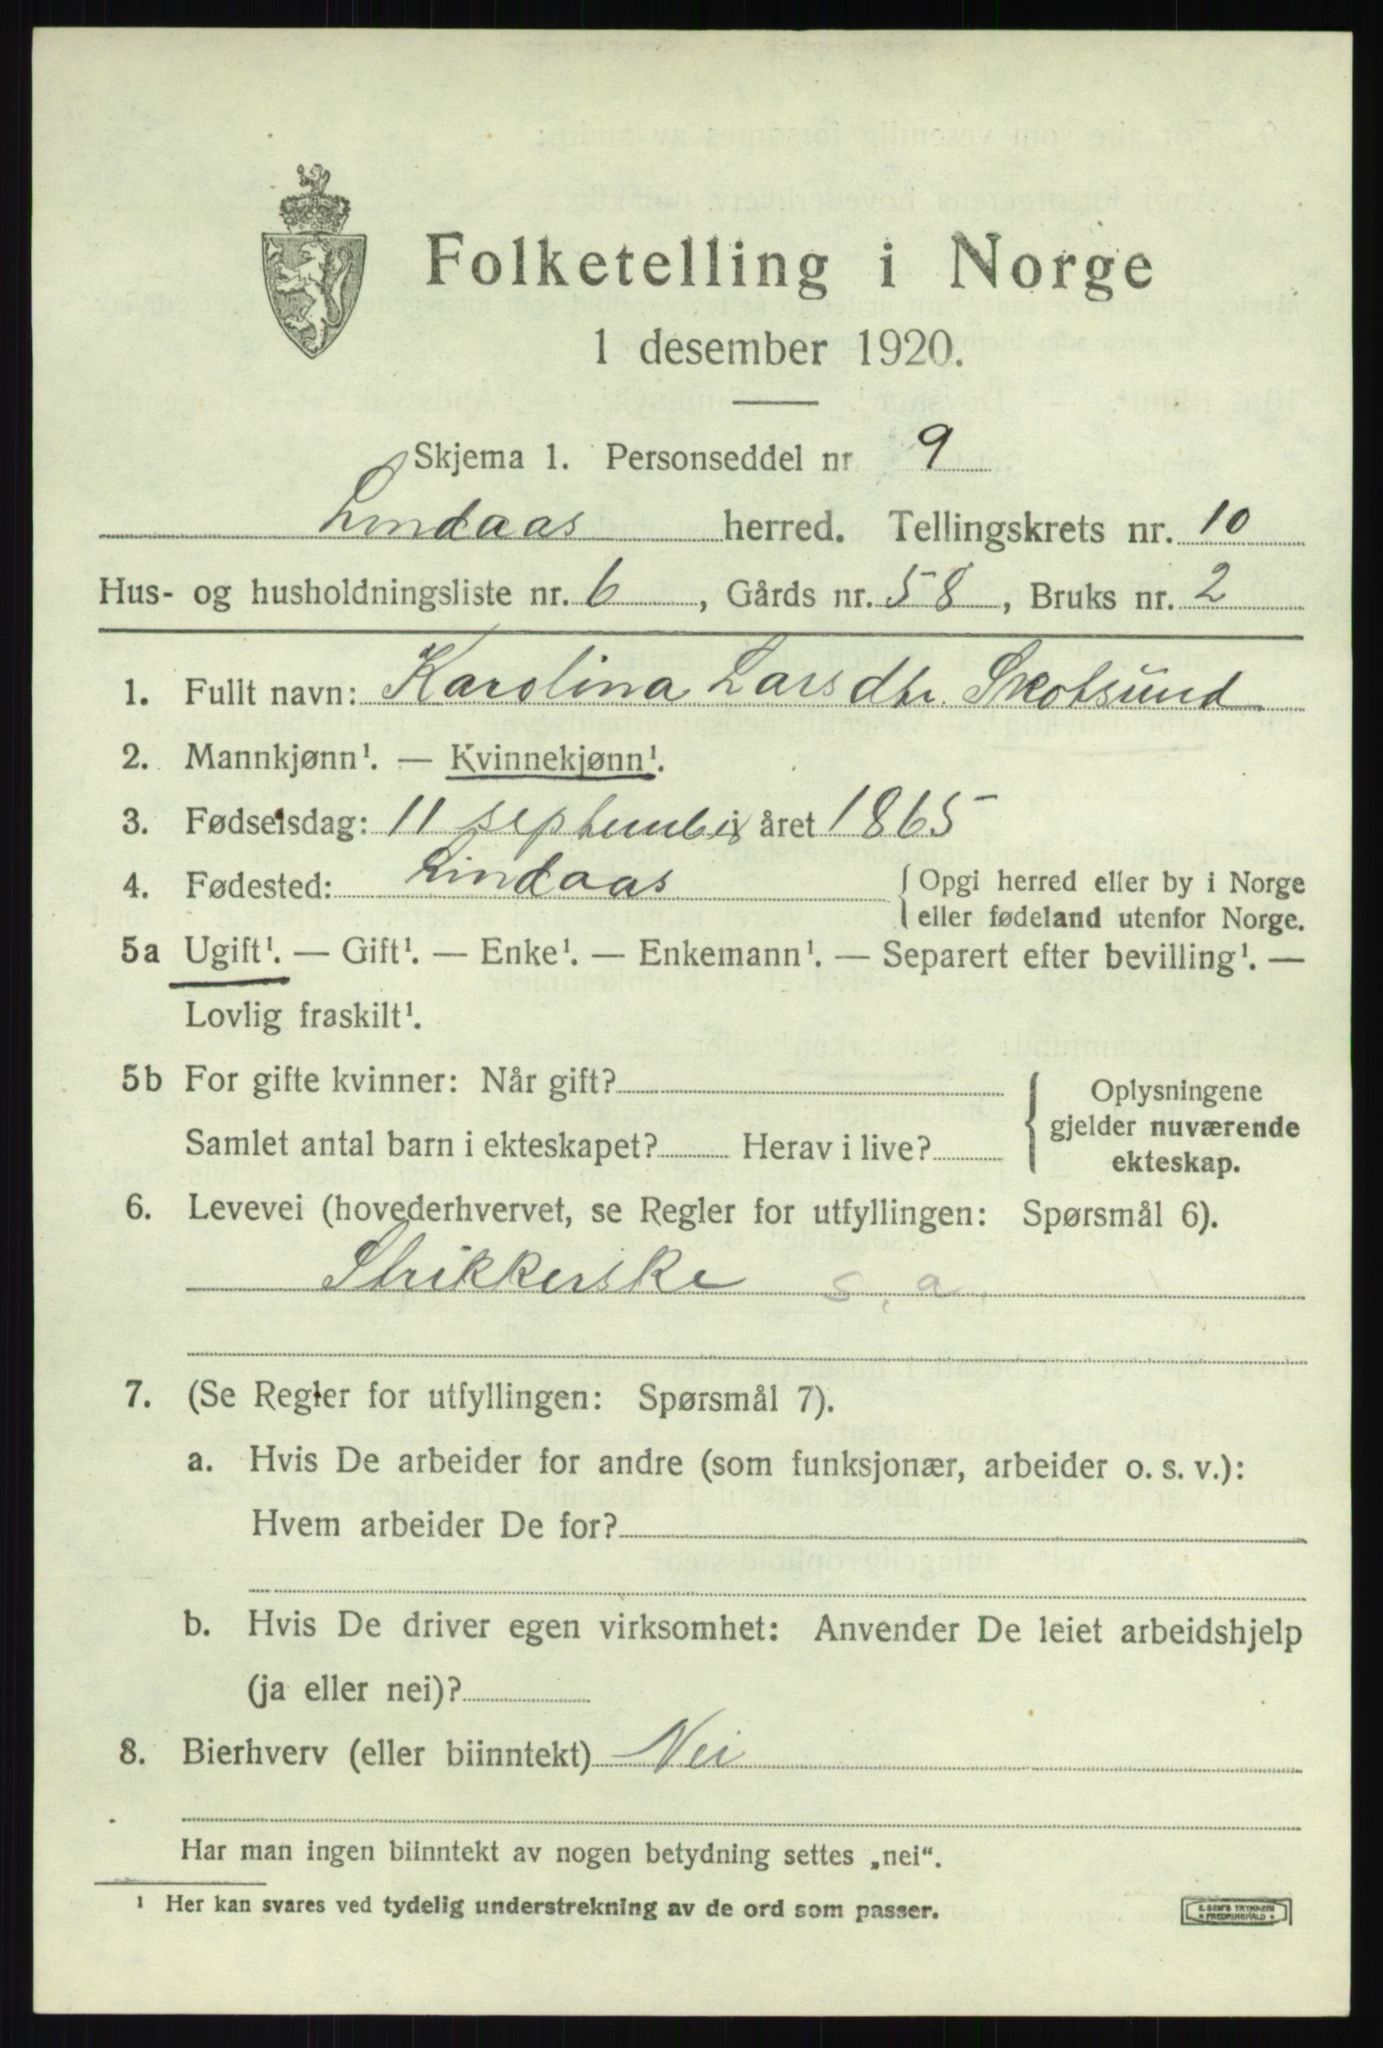 Folketelling i Norge
1 desember 1920.
Skjema 1. Personseddel nr 9
Lindaas herred. Tellingskrets nr. 10
Hus- og husholdningsliste nr. 6, Gårds nr. 58, Bruks nr. 2
1. Fullt navn: Karolina Larsdtr. Skotsund
2. Mannkjønn¹. — Kvinnekjønn¹.
3. Fødselsdag: 11 september i året 1865
4. Fødested: Lindaas { Opgi herred eller by i Norge
eller fødeland utenfor Norge.
5a Ugift¹. — Gift¹. — Enke¹. — Enkemann¹. — Separert efter bevilling¹. —
Lovlig fraskilt¹.
5b For gifte kvinner: Når gift?
Samlet antal barn i ekteskapet? Herav i live?
{ Oplysningene
gjelder nuværende
ekteskap.
6. Levevei (hovederhvervet, se Regler for utfyllingen: Spørsmål 6).
Strikkerske s.a.
7. (Se Regler for utfyllingen: Spørsmål 7).
a. Hvis De arbeider for andre (som funksjonær, arbeider o. s. v.):
Hvem arbeider De for?
b. Hvis De driver egen virksomhet: Anvender De leiet arbeidshjelp
(ja eller nei)?
8. Bierhverv (eller biinntekt) Nei
Har man ingen biinntekt av nogen betydning settes „nei“.
¹ Her kan svares ved tydelig understrekning av de ord som passer.
E. SEM'S TRYKKERI
FREDRIKSHALD